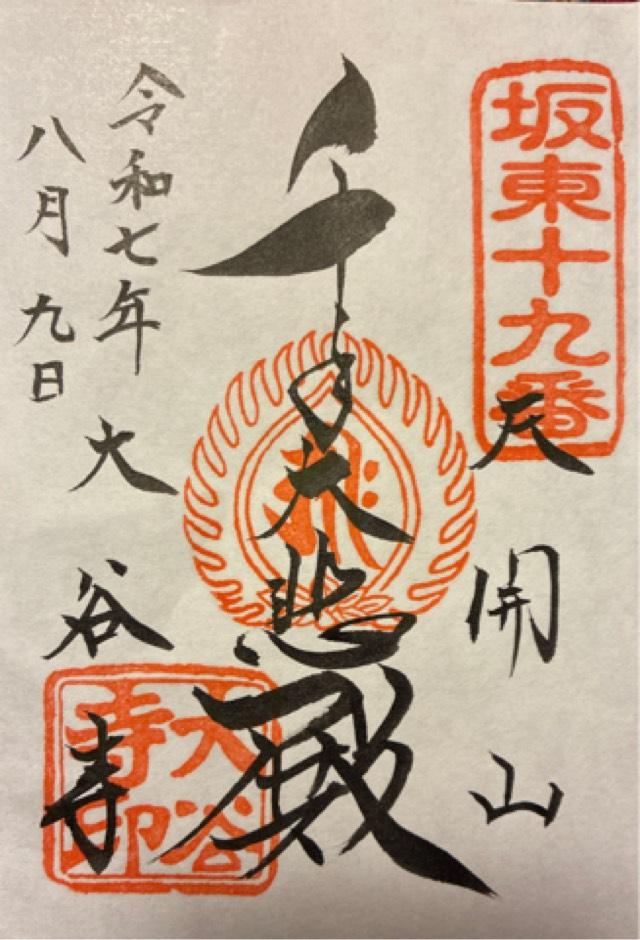 坂東十九番
天開山
千手大悲殿
大谷寺
令和七年
八月九日
大谷
寺印